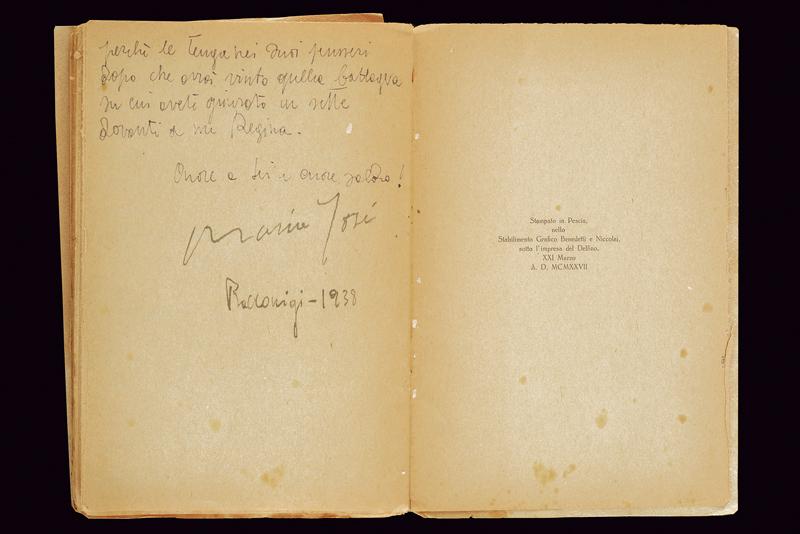 perchè le tenga nei suoi pensieri
dopo che avrà vinto quella battaglia
su cui avete giurato in sette
davanti a me Regina.
Onore a lei e cuore saldo!
Maria José
Racconigi – 1938
Stampato in Pescia,
nello
Stabilimento Grafico Benedetti e Niccolai,
sotto l'impresa del Delfino,
XXI Marzo
A. D. MCMXXVII